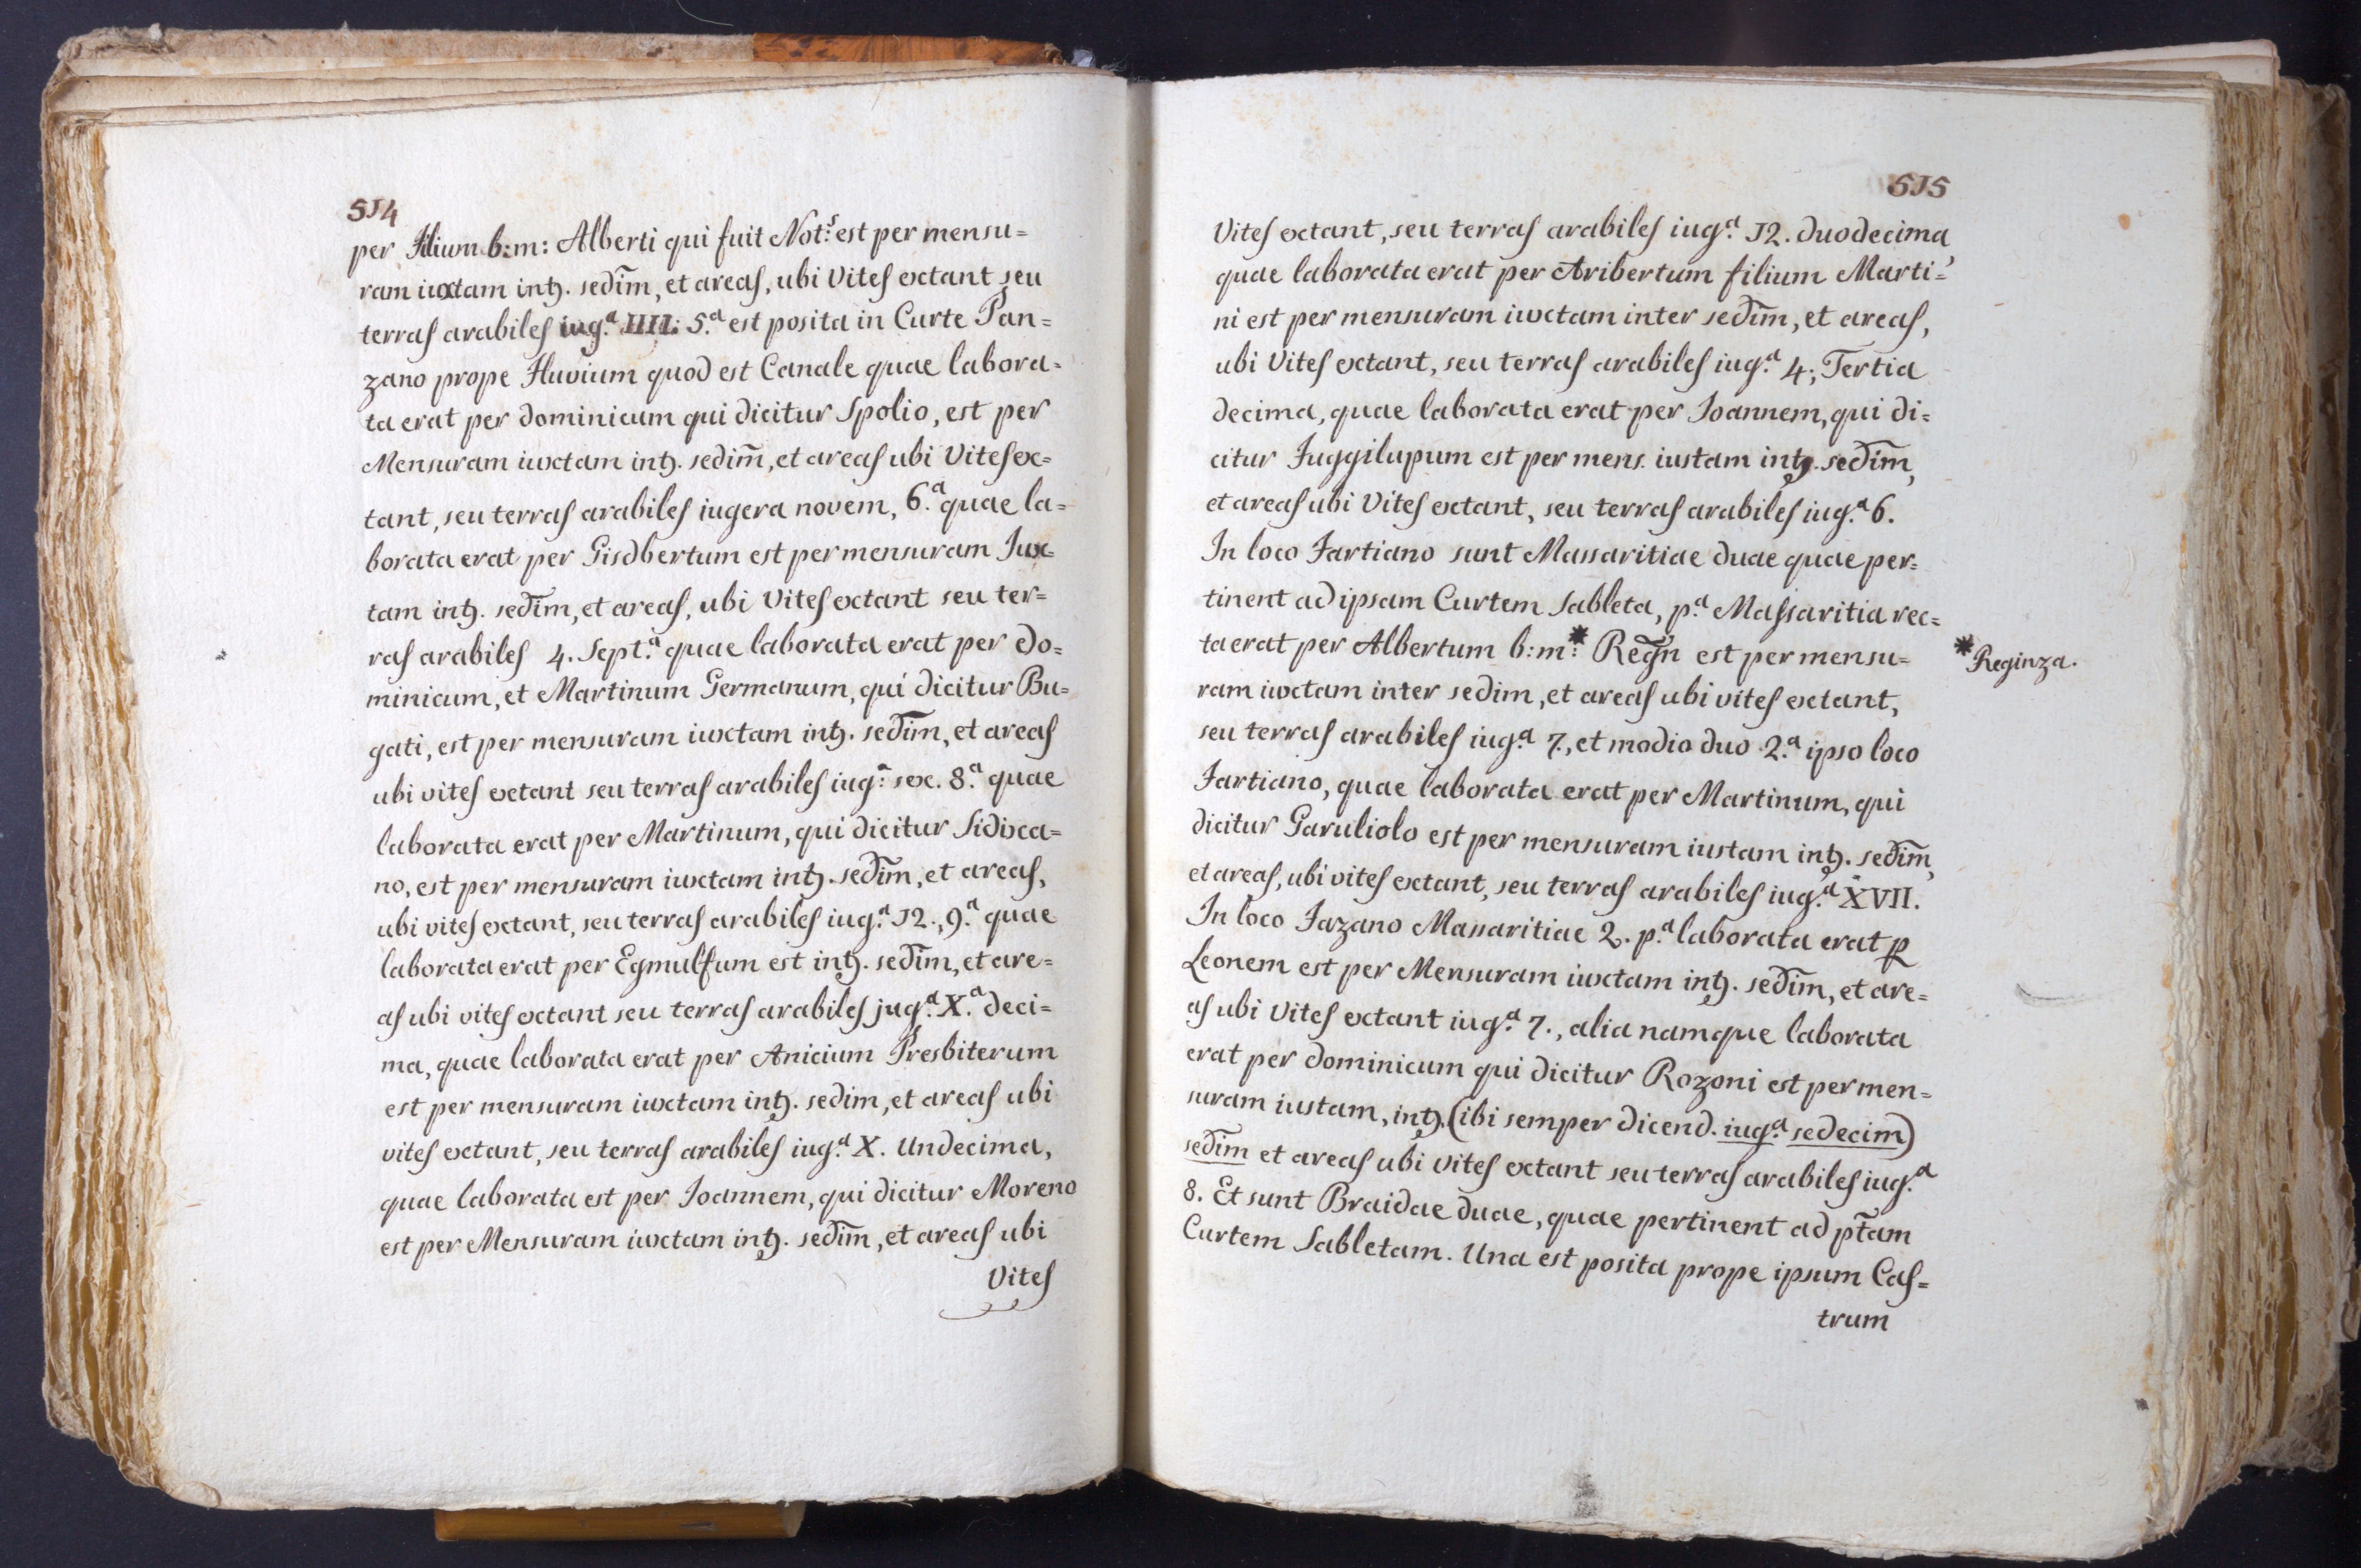 514
per Filium b:m: Alberti qui fuit Not.s est per mensu=
ram iuxtam intȝ. sedim̄, et areas, ubi Vites extant seu
terras arabiles iug.a IIII. 5.a est posita in Curte Pan=
zano prope Fluvium quod est Canale quae labora=
ta erat per dominicum qui dicitur Spolio, est per
Mensuram iuxtam intȝ. sedim̄, et areas ubi Vites ex=
tant, seu terras arabiles iugera novem, 6.a quae la=
borata erat per Gisdbertum est per mensuram Jux=
tam intȝ. sedim̄, et areas, ubi Vites extant seu ter=
ras arabiles 4. Sept.a quae laborata erat per Do=
minicum, et Martinum Germanum, qui dicitur Bu=
gati, est per mensuram iuxtam intȝ. sedim̄, et areas
ubi vites extant seu terras arabiles iug.a sex. 8.a quae
laborata erat per Martinum, qui dicitur Sidixa=
no, est per mensuram iuxtam intȝ. sedim̄, et areas,
ubi vites extant, seu terras arabiles iug.a 12., 9.a quae
laborata erat per Egmulfum est intȝ. sedim̄, et are=
as ubi vites extant seu terras arabiles jug.a X.a deci=
ma, quae laborata erat per Anicium Presbiterum
est per mensuram iuxtam intȝ. sedim, et areas ubi
vites extant, seu terras arabiles iug.a X. Undecima,
quae laborata est per Joannem, qui dicitur Moreno
est per Mensuram iuxtam intȝ. sedim̄, et areas ubi
Vites
515
Vites extant, seu terras arabiles iug.a 12. duodecima
quae laborata erat per Aribertum filium Marti=
ni est per mensuram iuxtam inter sedim̄, et areas,
ubi Vites extant, seu terras arabiles iug.a 4; Tertia
decima, quae laborata erat per Joannem, qui di=
citur Fuggilupum est per mens. iustam intȝ. sedim̄,
et areas ubi Vites extant, seu terras arabiles iug.a 6.
In loco Fartiano sunt Massaritiae duae quae per=
tinent ad ipsam Curtem Sableta, p.a Massaritia rec=
ta erat per Albertum b:m:* Regn̄ est per mensu=
* Reginza.
ram iuxtam inter sedim, et areas ubi vites extant,
seu terras arabiles iug.a 7., et modia duo 2.a ipso loco
Fartiano, quae laborata erat per Martinum, qui
dicitur Garuliolo est per mensuram iustam intȝ. sedim̄,
et areas, ubi vites extant, seu terras arabiles iug.a XVII.
In loco Fazano Massaritiae 2. p.a laborata erat ꝑ
Leonem est per Mensuram iuxtam intȝ. sedim̄, et are=
as ubi Vites extant iug.a 7., alia namque laborata
erat per dominicum qui dicitur Rozoni est per men=
suram iustam, intȝ. (ibi semper dicend. iug.a sedecim)
sedim̄ et areas ubi vites extant seu terras arabiles iug.a
8. Et sunt Braidae duae, quae pertinent ad pt̄am
Curtem Sabletam. Una est posita prope ipsum Cas=
trum